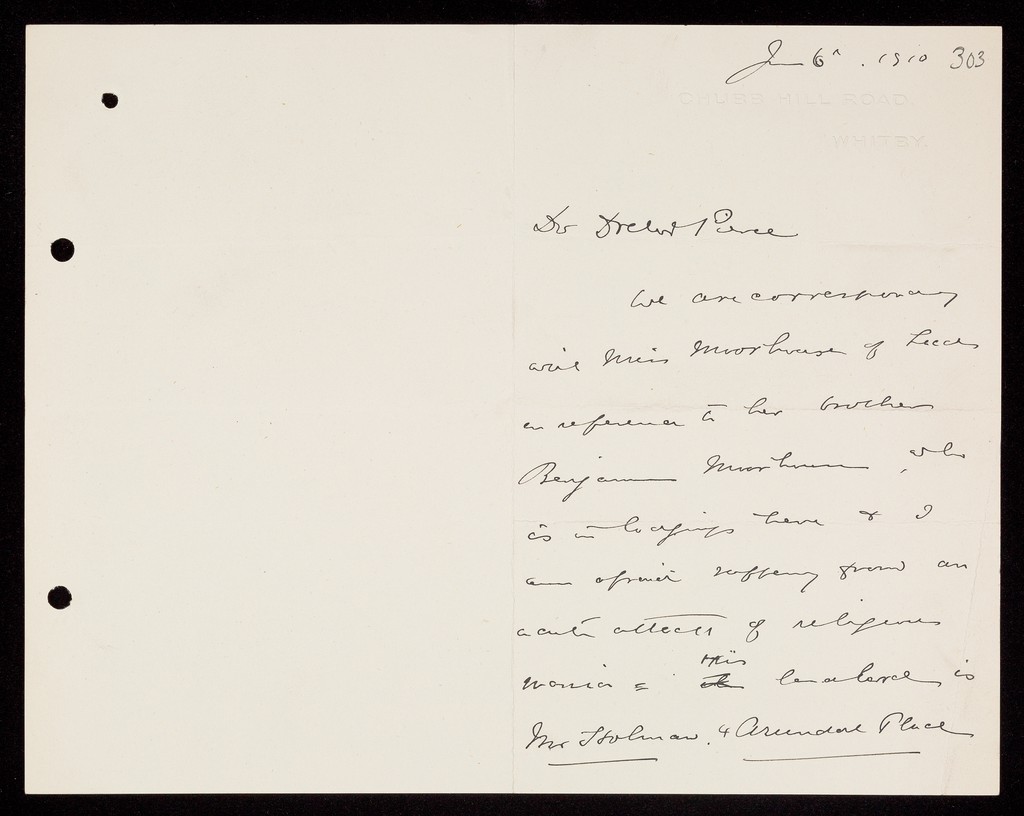 Jan 6th. 1910 303
CHUBB HILL ROAD,
WHITBY.
Dr Pierce
We are corresponding
with Miss Moorhouse of Leeds
in reference to her brother
Benjamin Moorhouse, who
is in lodgings here & I
am afraid suffering from an
acute attack of religious
mania = His landlord is
Mr Holman, 4 Arundel Place